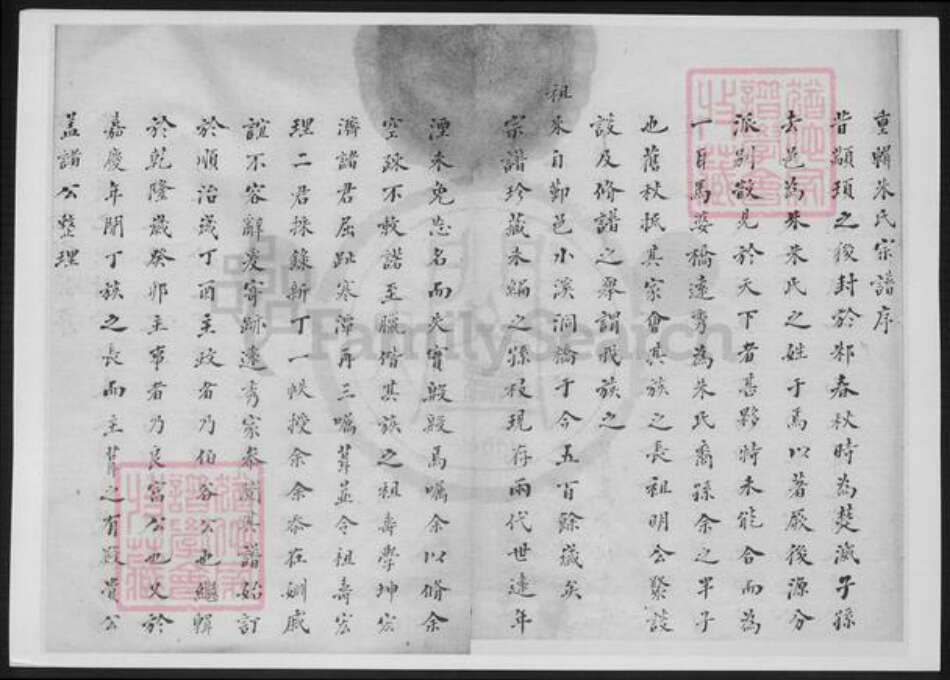 重輯朱氏宗譜序
昔顓頊之後封於邾春秋時為楚滅子孫
去邑為朱朱氏之姓于焉以著厥後源分
派別散見於天下者甚夥特未能合而為
一耳馬婆橋遠秀為朱氏裔孫余之半子
也舊秋抵其家會其族之長祖明公聚談
談及脩譜之舉謂我族之
祖朱自鄞邑小溪洞橋于今五百餘歲矣
宗譜珍藏未編之孫枝現存兩代世遠年
湮未免忘名而失實殷殷焉囑余以脩余
空疎不敢諾至臘偕其族之祖壽學坤宏
濟諸君屈趾寒潭再三囑葺並令祖壽宏
理二君採錄新丁一帙授余余忝在姻戚
誼不容辭爰寄跡遠秀家恭閱舊譜始訂
於順治歲丁酉主政者乃伯谷公也繼輯
於乾隆歲癸卯主事者乃良富公也又於
嘉慶年間丁族之長而主葺之有殿賞公
蓋譜公整理
FamilySearch